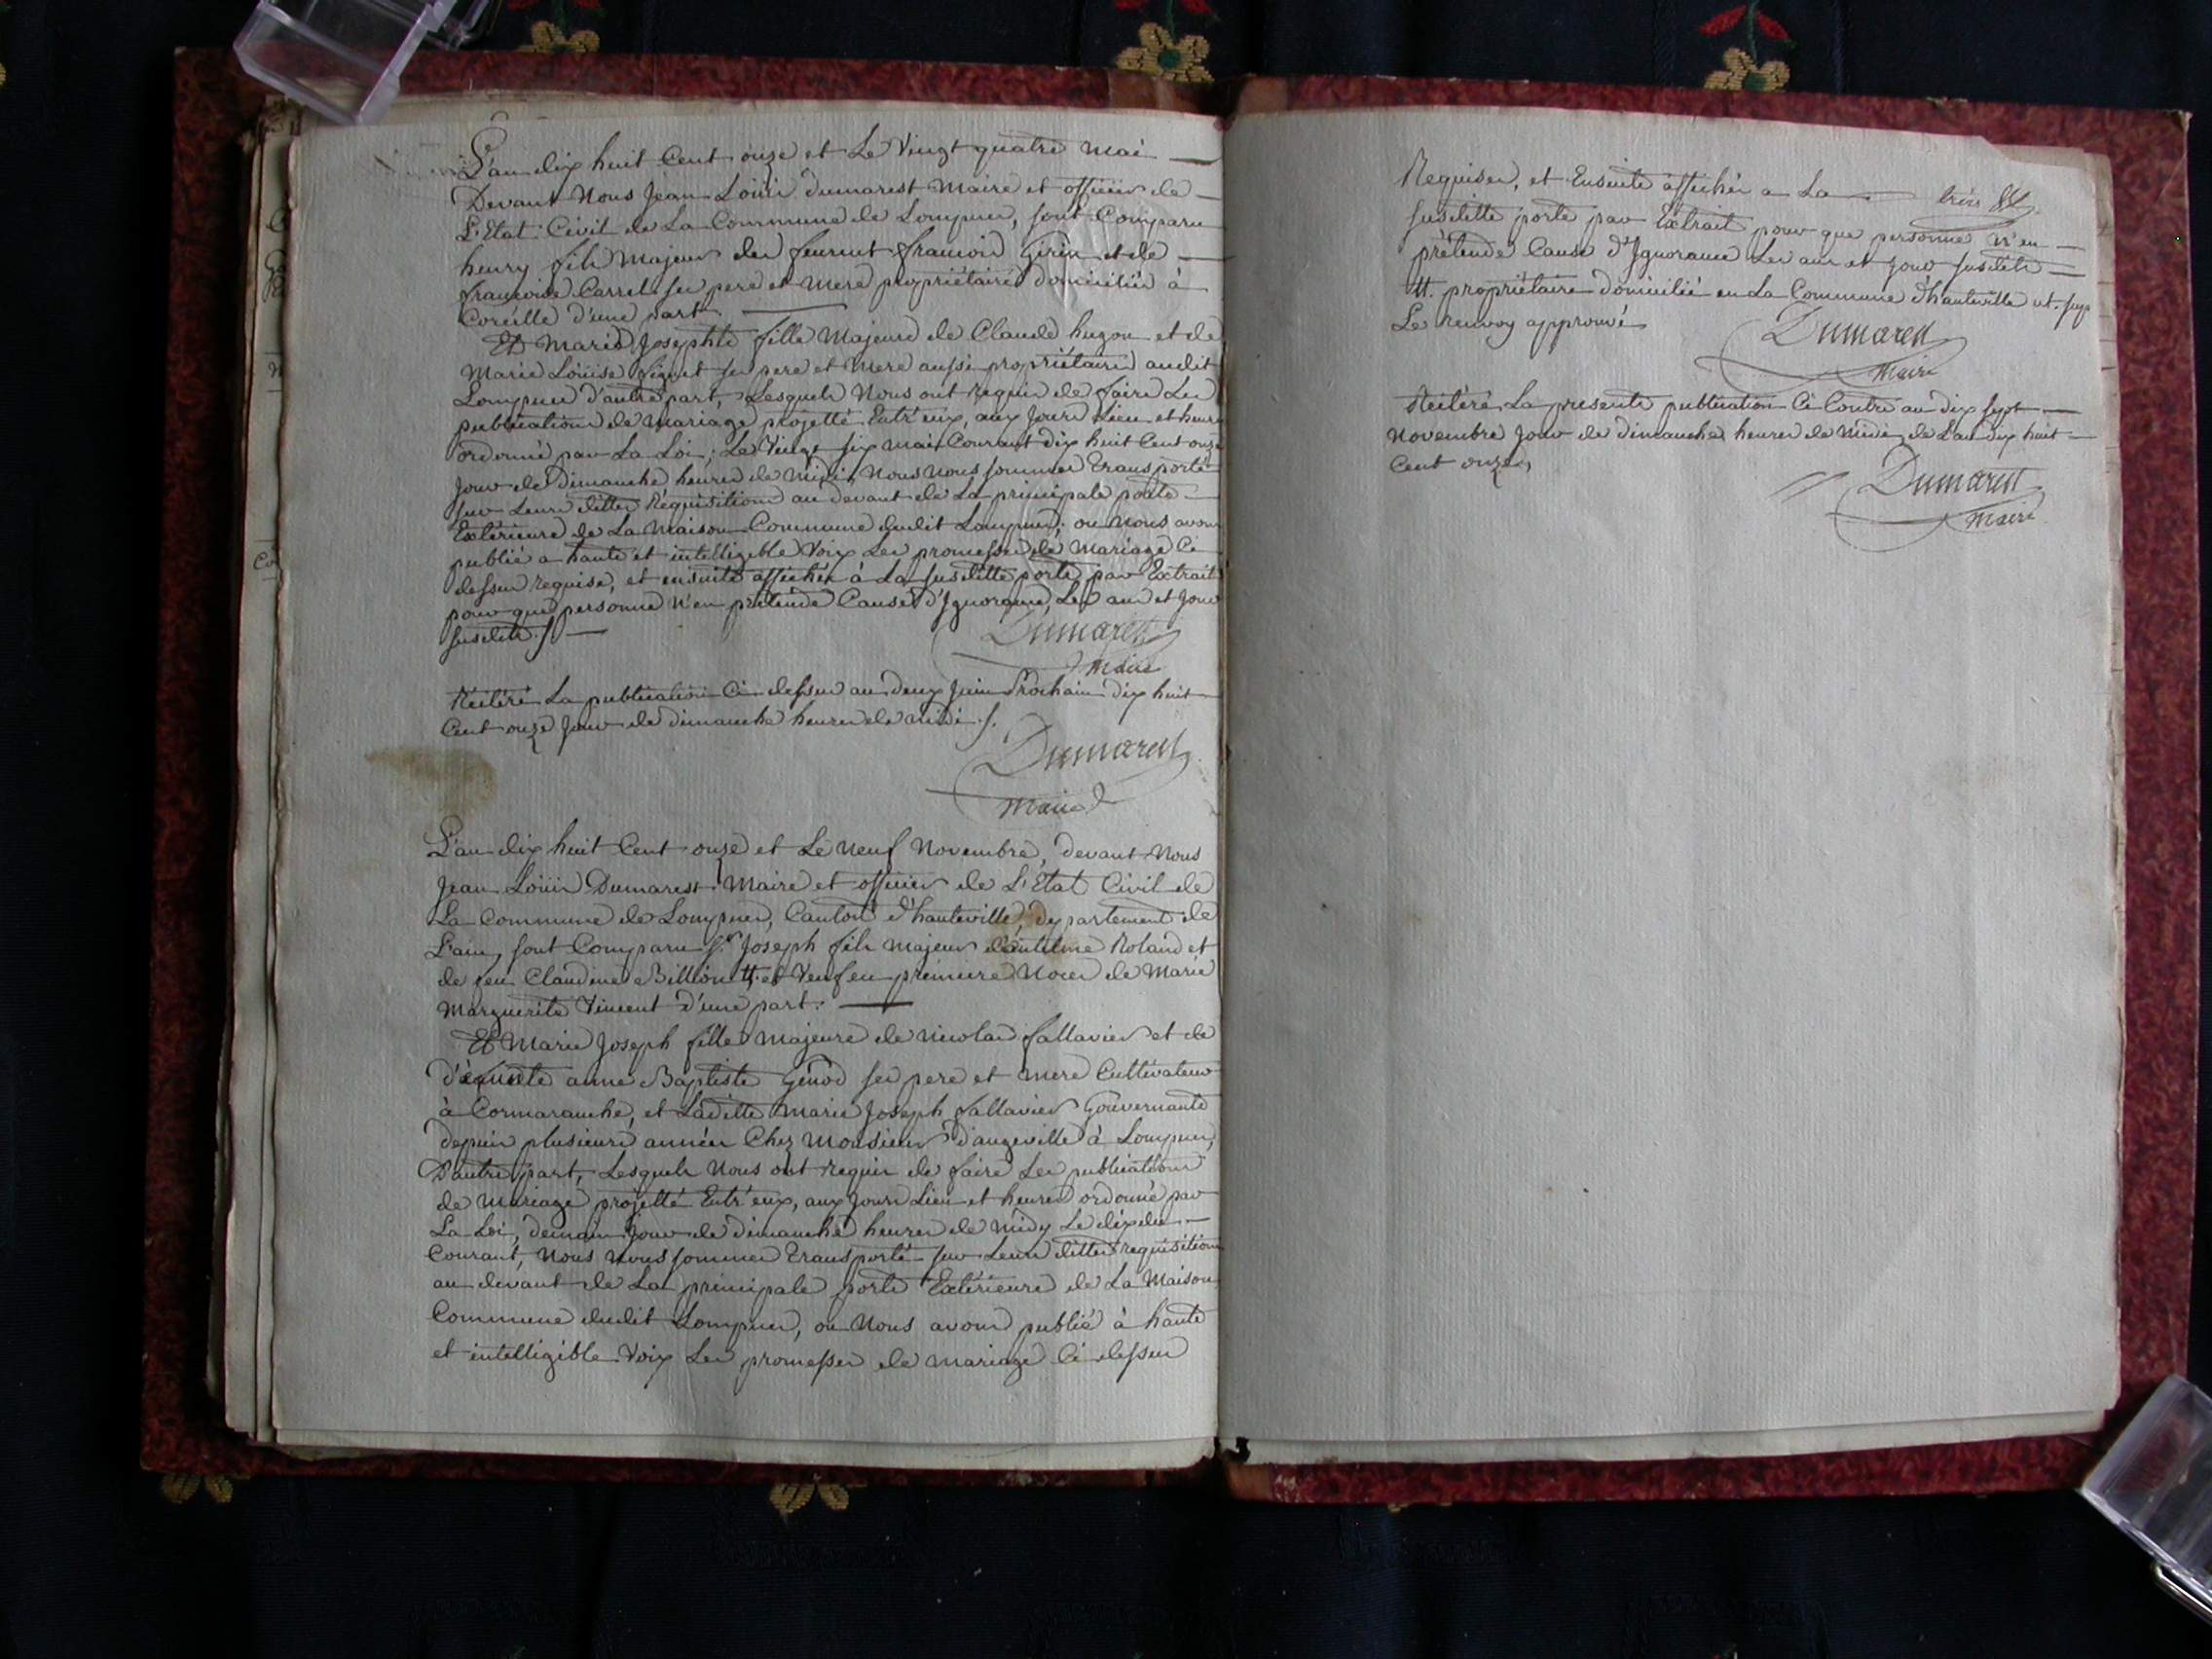 L'an dix huit Cent onze et Le Vingt quatre mai
Devant Nous Jean Loüis dumarest Maire et officier de
L'Etat Civil de La Commune de Lompnes, sont Comparu
henry fils Majeur de françois Girin et de
françoise Carrel ses pere et Mere propriétaires domiciliés à
d'une part
Et Marie Josephte fille Majeure de Claude hugon et de
Marie Loüise ses pere et Mere aussi propriétaires audit
Lompnes d'autre part, Lesquels Nous ont requis de faire Les
publications de Mariage projetté Entr'eux, aux Jours Lieu et heures
ordonné par La Loi; Le Vingt six mai Courant dix huit Cent onze
Jour de Dimanche heures de midi, Nous nous sommes transporté
sur Leurs dittes Réquisitions au devant de La principale porte
Extérieure de La Maison Commune dudit Lompnes; ou Nous avons
publié a haute et intelligible Voix Les promesses de Mariage Ci
dessus requise, et ensuite affichés à La susditte porte par Extrait
pour que personne n'en prétende Cause d'Ignorance, Les an et Jour
susdits
Dumarest
Maire
Réitéré La publication Ci dessus au deux Juin Prochain dix huit
Cent onze Jour de dimanche heures de midi
Dumarest
Maire
L'an dix huit Cent onze et Le Neuf Novembre, devant Nous
Jean Loüis Dumarest Maire et officier de L'Etat Civil de
La Commune de Lompnes, Canton d'hauteville, département de
L'ain, sont Comparu Sr. Joseph fils majeur d'antelme Roland et
de feu Claudine Billion tt. et Veuf en première Noces de Marie
Marguerite Vincent d'une part.
Et Marie Joseph fille Majeure de Nicolas fallavier et de
défunte anne Baptiste Genod ses pere et mere Cultivateur
à Cormaranche, et Laditte Marie Joseph fallavier Gouvernante
depuis plusieurs années Chez Monsieur d'angeville à Lompnes,
D'autre part, Lesquels Nous ont requis de faire Les publications
de Mariage projetté Entr'eux, aux Jours Lieu et heures ordonné par
La Loi, demain Jour de dimanche heures de midy Le dix du
Courant, Nous nous sommes transporté sur Leurs dittes requisitions
au devant de La principale porte Extérieure de La Maison
Commune dudit Lompnes, ou Nous avons publié à haute
et intelligible Voix Les promesses de mariage Ci dessus
Requises, et Ensuite affichés a La
susditte porte par Extrait pour que personne n'en
prétende Cause d'Ignorance Les an et Jour susdits
tt. propriétaire domicilié en La Commune d'hauteville ut. sup
Le renvoy approuvé
Dumarest
Maire
Réitéré La presente publication Ci Contre au dix sept
Novembre Jour de dimanche heures de Midi de L'an dix huit
Cent onze,
Dumarest
Maire